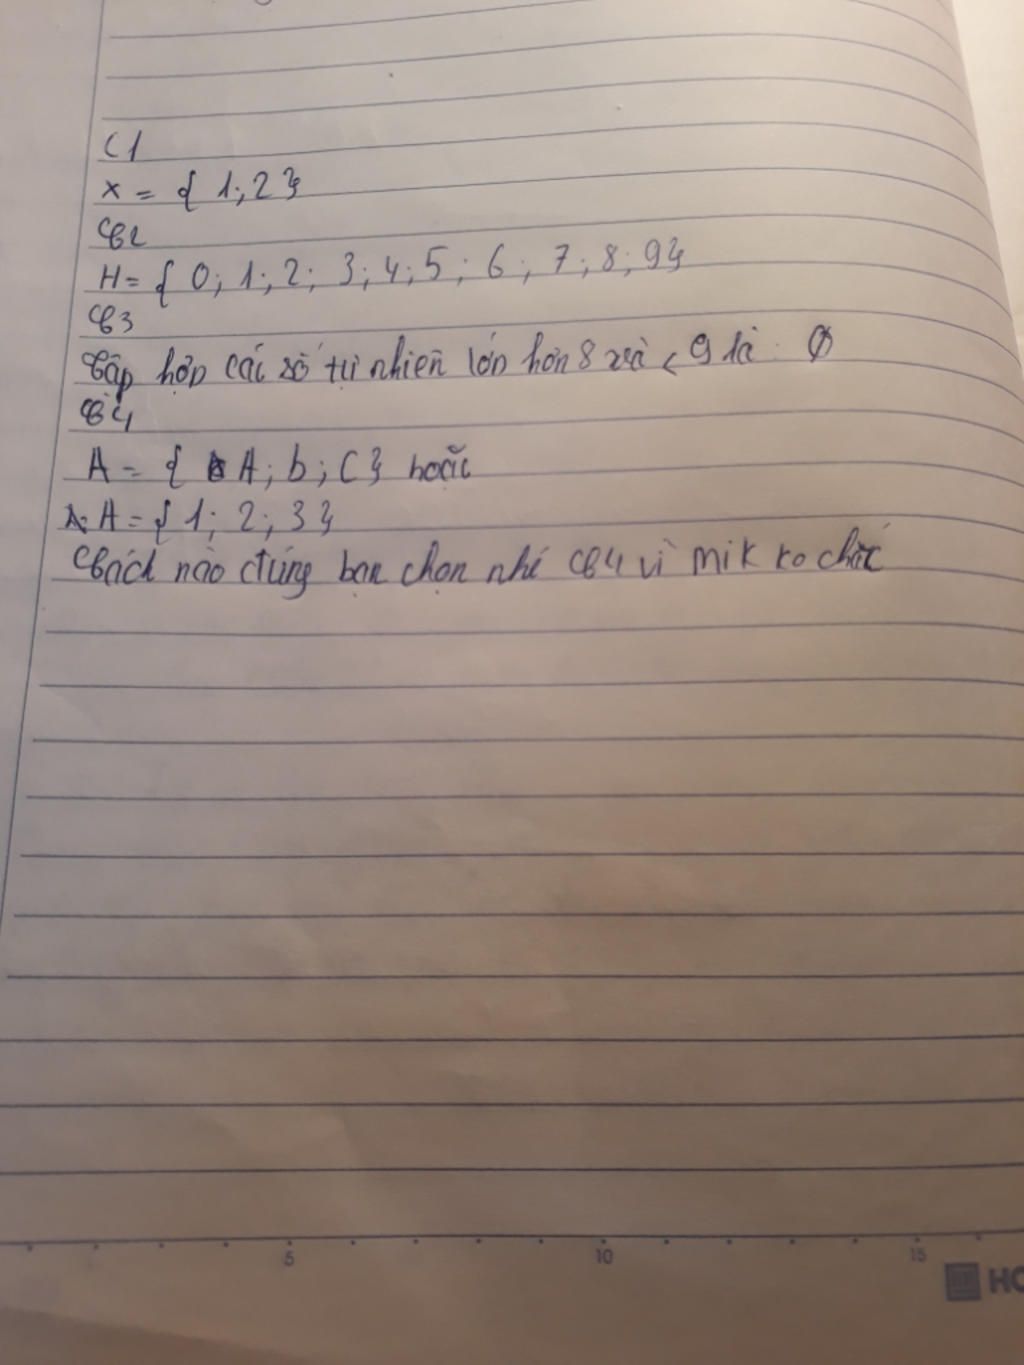 C1
X = { 1; 2 }
C2
H = { 0; 1; 2; 3; 4; 5; 6; 7; 8; 9 }
C3
Tập hợp các số tự nhiên lớn hơn 8 và < 9 là ∅
C4
A = { A; b; C } hoặc
A = { 1; 2; 3 }
Cách nào đúng bạn chọn nhé C4 vì mik ko chắc
5 10 15
HO